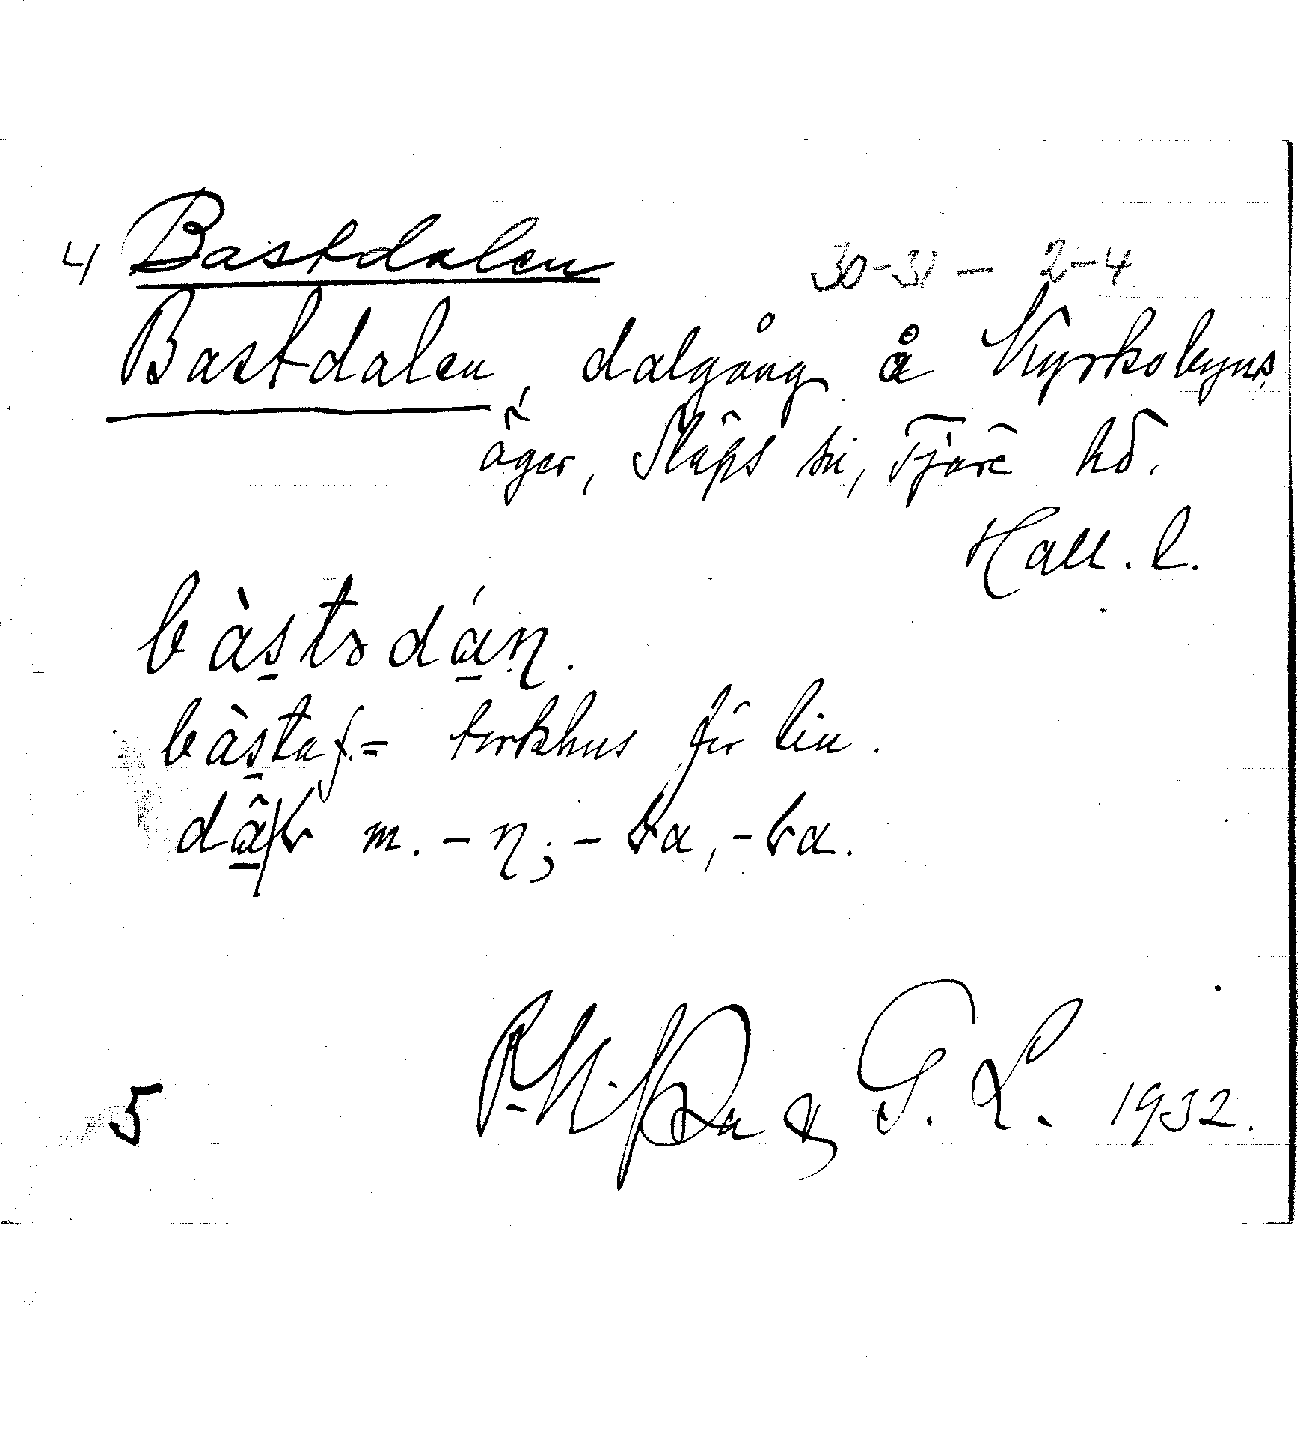 4 Bastdalen 30-31 - 2-4
Bastdalen, dalgång å Kyrkobyns
ägor, Släps sn, Fjäre hd.
Hall. l.
bàstədán.
bàsta f. = torkhus för lin.
m. -η; -ba, -ba.
5 & G. L. 1932.